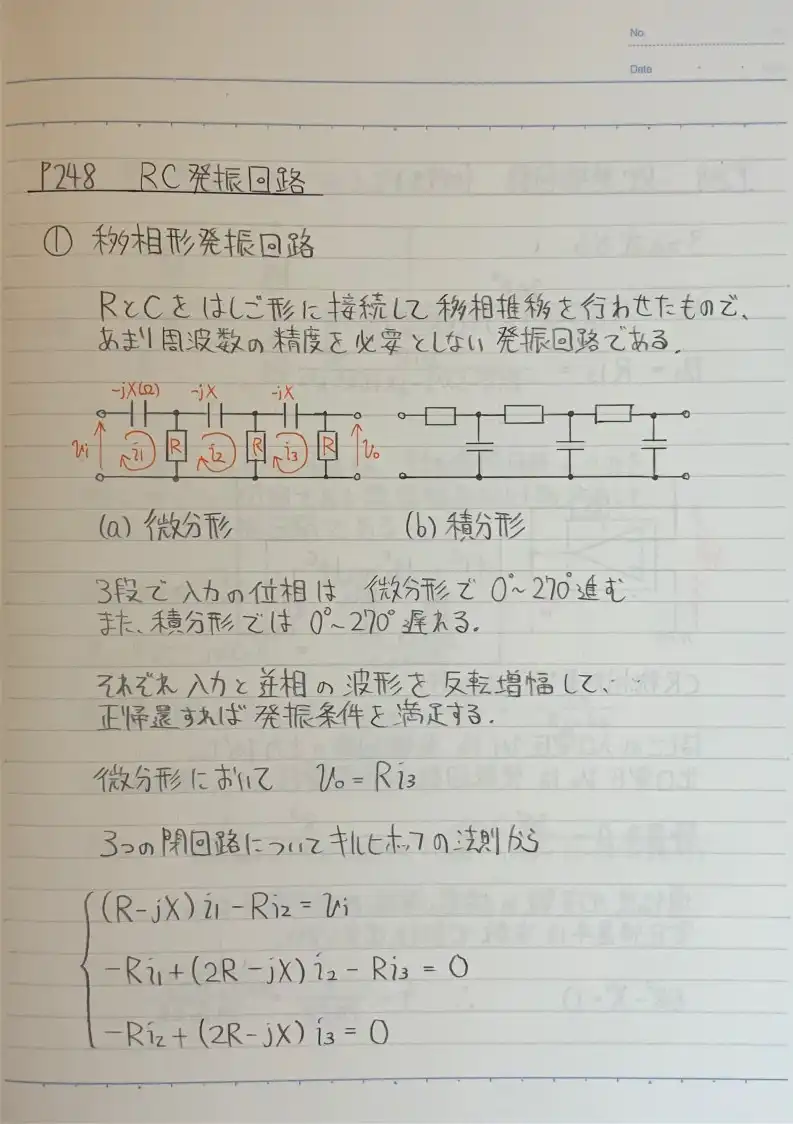 No.
Date
P248 RC発振回路
① 移相形発振回路
RとCを はしご形に接続して移相推移を行わせたもので、
あまり周波数の精度を必要としない発振回路である.
-jX(Ω) -jX -jX
vi i1 R i2 R i3 R vo
(a) 微分形 (b) 積分形
3段で入力の位相は 微分形で 0°~270°進む
また、積分形では 0°~270°遅れる.
それぞれ入力と並相の波形を反転増幅して、
正帰還すれば発振条件を満足する.
微分形において vo = Ri3
3つの閉回路についてキルヒホッフの法則から
(R-jX)i1-Ri2=vi
-Ri1+(2R-jX)i2-Ri3=0
-Ri2+(2R-jX)i3=0